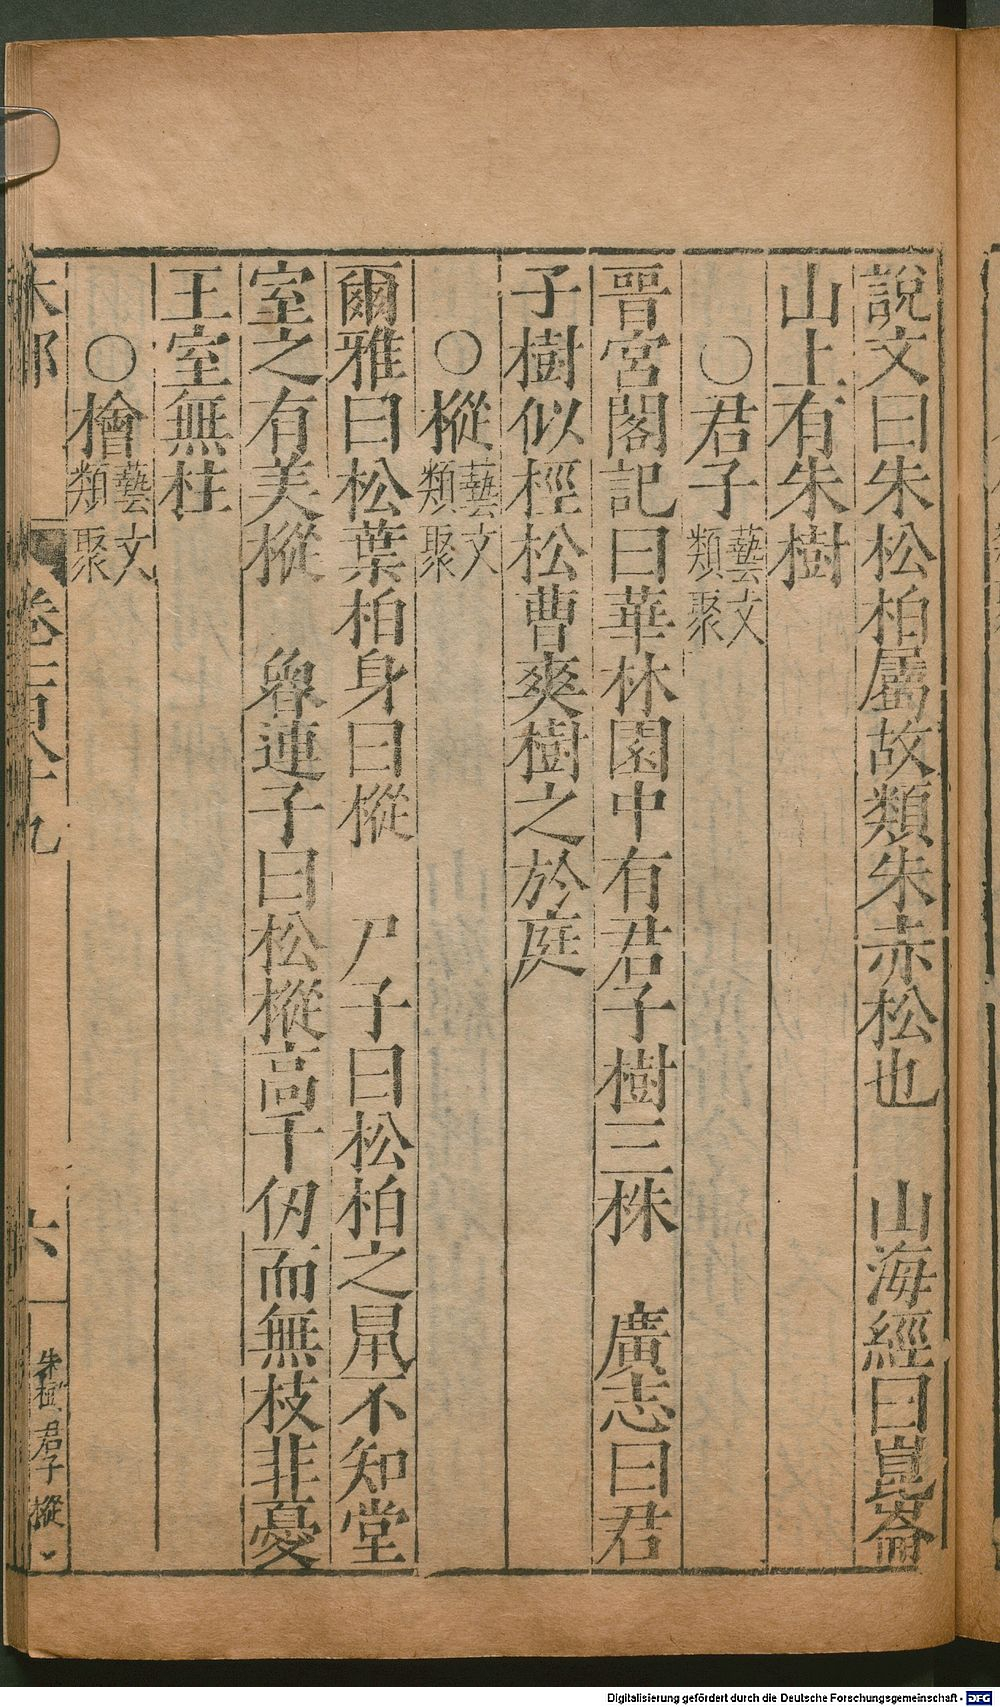 說文曰朱松柏屬故類朱赤松也　山海經曰崑崙
山上有朱樹
○君子藝文類聚
晉宮閣記曰華林園中有君子樹三株　廣志曰君
子樹似檉松曹爽樹之於庭
○樅藝文類聚
爾雅曰松葉柏身曰樅　尸子曰松柏之鼠不知堂
室之有美樅　魯連子曰松樅高千仞而無枝非憂
王室無柱
○檜藝文類聚
木部
卷一百八十九
六
朱樹 君子 樅
Digitalisierung gefördert durch die Deutsche Forschungsgemeinschaft - DFG